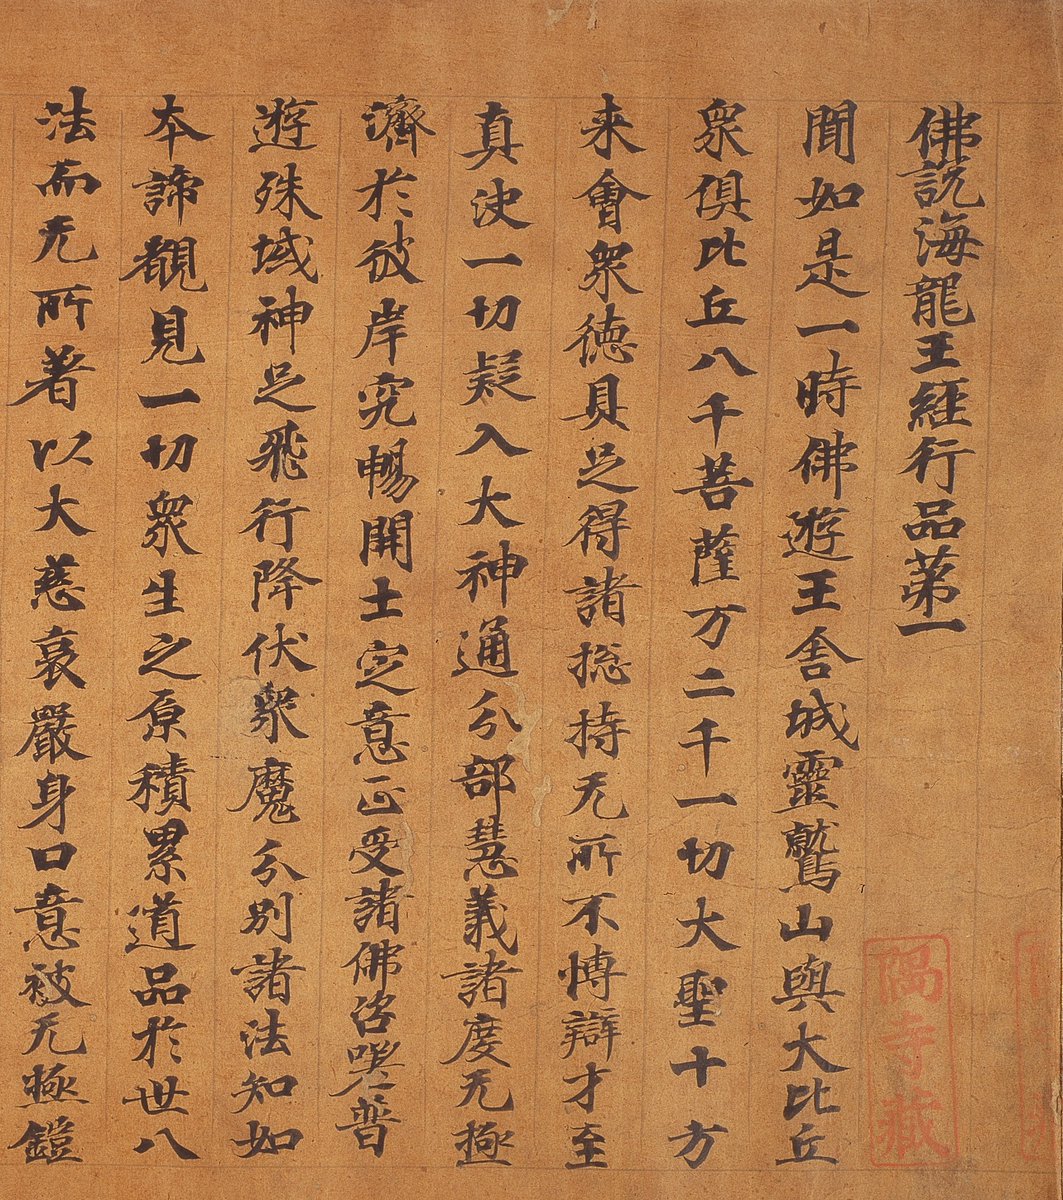 佛説海龍王經行品第一
聞如是一時佛遊王舍城靈鷲山與大比丘
衆俱比丘八千菩薩万二千一切大聖十方
来會衆徳具足得諸捴持无所不愽辯才至
真决一切疑入大神通分部慧義諸度无極
濟於彼岸究暢開士定意正受諸佛咨嗟普
遊殊域神足飛行降伏衆魔分別諸法知如
本諦觀見一切衆生之原積累道品於世八
法而无所著以大慈哀嚴身口意被无極鎧
隅寺藏